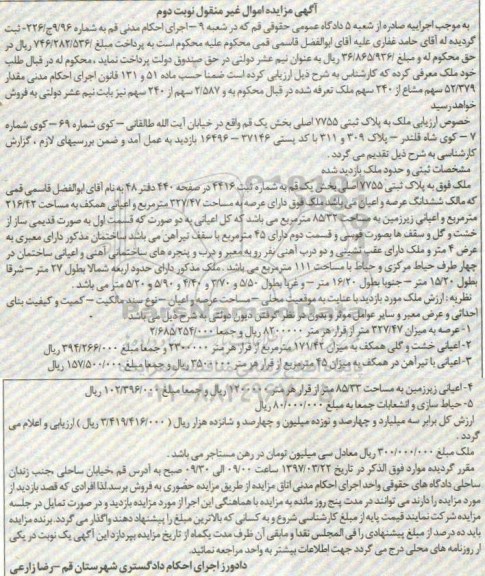 آگهی مزایده اموال غیر منقول نوبت دوم
به موجب اجراییه صادره از شعبه ۵ دادگاه عمومی حقوقی قم که در شعبه ۹ – اجرای احکام مدنی قم به شماره ۹/۹۶ج/۲۲۶- ثبت
گردیده له آقای حامد غفاری علیه آقای ابوالفضل قاسمی قمی محکوم علیه محکوم است به پرداخت مبلغ ۷۴۶/۲۸۲/۵۳۶ ریال در
حق محکوم له و مبلغ ۳۶/۸۶۵/۹۲۶ ریال به عنوان نیم عشر دولتی در حق صندوق دولت پرداخت نماید ، محکوم له در قبال طلب
خود ملک معرفی کرده که کارشناس به شرح ذیل ارزیابی کرده است ضمنا حسب ماده ۵۱ و ۱۳۱ قانون اجرای احکام مدنی مقدار
۵۲/۳۷۹ سهم مشاع از ۲۴۰ سهم ملک تعرفه شده در قبال محکوم به و ۲/۵۸۷ سهم از ۲۴۰ سهم نیز بابت نیم عشر دولتی به فروش
خواهد رسید
خصوص ارزیابی ملک به پلاک ثبتی ۷۷۵۵ اصلی بخش یک قم واقع در خیابان آیت الله طالقانی – کوی شماره ۶۹ – کوی شماره
۷ – کوی شاه قلندر – پلاک ۳۰۹ و ۳۱۱ با کد پستی ۳۷۱۴۶ – ۱۶۴۹۶ بازدید به عمل آمد و ضمن بررسیهای لازم ، گزارش
کارشناسی به شرح ذیل تقدیم می گردد .
مشخصات ثبتی و حدود ملک بازدید شده
ملک فوق به پلاک ثبتی ۷۷۵۵ اصلی بخش یک قم به شماره ثبت ۴۴۱۶ در صفحه ۴۴۰ دفتر ۴۸ به نام آقای ابوالفضل قاسمی قمی
که مالک ششدانگ عرصه و اعیان می باشد ملک فوق دارای عرصه به مساحت ۳۲۷/۴۷ مترمربع و اعیانی همکف به مساحت ۲۱۶/۴۲
مترمربع و اعیانی زیرزمین به مساحت ۸۵/۳۳ مترمربع می باشد که کل اعیانی به دو صورت که قسمت اول به صورت قدیمی ساز از
خشت و گل و سقف ها بصورت قوسی و قسمت دوم دارای ۴۵ مترمربع با سقف تیرآهن می باشد ساختمان مذکور دارای معبری به
عرض ۴ متر و ملک دارای عقب نشینی و دو درب آهنی نفر رو به معبر و درب و پنجره های ساختمانی آهنی و اعیانی ساختمان در
چهار طرف حیاط مرکزی و حیاط با مساحت ۱۱۱ مترمربع می باشد . ملک مذکور دارای حدود اربعه شمالا بطول ۲۷ متر – شرقا
بطول ۱۵/۲۰ متر – جنوبا بطول ۱۶/۲۰ متر – و غربا بطول ۵/۵۰ و ۳/۷۰ و ۴/۴۰ و ۵/۹۰ و ۵/۲۰ متر می باشد .
نظریه : ارزش ملک مورد بازدید با عنایت به موقعیت محلی – مساحت عرصه و اعیان – نوع سند مالکیت – کمیت و کیفیت بنای
احداثی و عرض معبر و سایر عوامل موثر و بدون در نظر گرفتن دیون دولتی به شرح ذیل می باشد .
۱- عرصه به میزان ۳۲۷/۴۷ متر از قرار هر متر ۸۲۰۰۰۰۰ ریال و جمعا ۲/۶۸۵/۲۵۴/۰۰۰
۲- اعیانی خشت و گلی همکف به میزان ۱۷۱/۴۲ مترمربع از قرار هر متر ۲۳۰۰۰۰۰ و جمعا مبلغ ۳۹۴/۲۶۶/۰۰۰ ریال
۳- اعیانی با تیرآهن در همکف به میزان ۴۵ مترمربع از قرار هر متر ۳۵۰۰۰۰۰ ریال و جمعا مبلغ ۱۵۷/۵۰۰/۰۰۰ ریال
۴- اعیانی زیرزمین به مساحت ۸۵/۳۳ متر از قرار هر متر ۱۲۰۰۰۰۰ ریال و جمعا مبلغ ۱۰۲/۳۹۶/۰۰۰ ریال
۵- حیاط سازی و انشعابات جمعا به مبلغ ۸۰/۰۰۰/۰۰۰ ریال
ارزش کل برابر سه میلیارد و چهارصد و نوزده میلیون و چهارصد و شانزده هزار ریال ( ۳/۴۱۹/۴۱۶/۰۰۰ ریال ) ارزیابی و اعلام می
گردد .
ملک مبلغ ۳۰۰/۰۰۰/۰۰۰ ریال معادل سی میلیون تومان در رهن مستاجر می باشد .
مقرر گردیده موارد فوق الذکر در تاریخ ۱۳۹۷/۰۳/۲۲ ساعت ۰۹/۰۰ الی ۰۹/۳۰ صبح به آدرس قم ،خیابان ساحلی ،جنب زندان
ساحلی دادگاه های حقوقی واحد اجرای احکام مدنی اتاق مزایده از طریق مزایده حضوری به فروش برسد.لذا افرادی که قصد بازدید از
مورد مزایده را دارند می توانند در مدت پنج روز مانده به مزایده با هماهنگی این اجرا از مورد مزایده بازدید و در صورت تمایل در جلسه
مزایده شرکت نمایند قیمت پایه از مبلغ کارشناسی شروع و به کسانی که بالاترین مبلغ را پیشنهاد دهند واگذار می گردد. برنده مزایده
باید ده درصد از مبلغ پیشنهادی را فی المجلس نقدا و مابقی آن ظرف مدت یکماه از تاریخ مزایده بپردازد این آگهی یک نوبت در یکی
از روزنامه های محلی درج می گردد جهت اطلاعات بیشتر به واحد مراجعه نمائید.
دادورز اجرای احکام دادگستری شهرستان قم –رضا زارعی